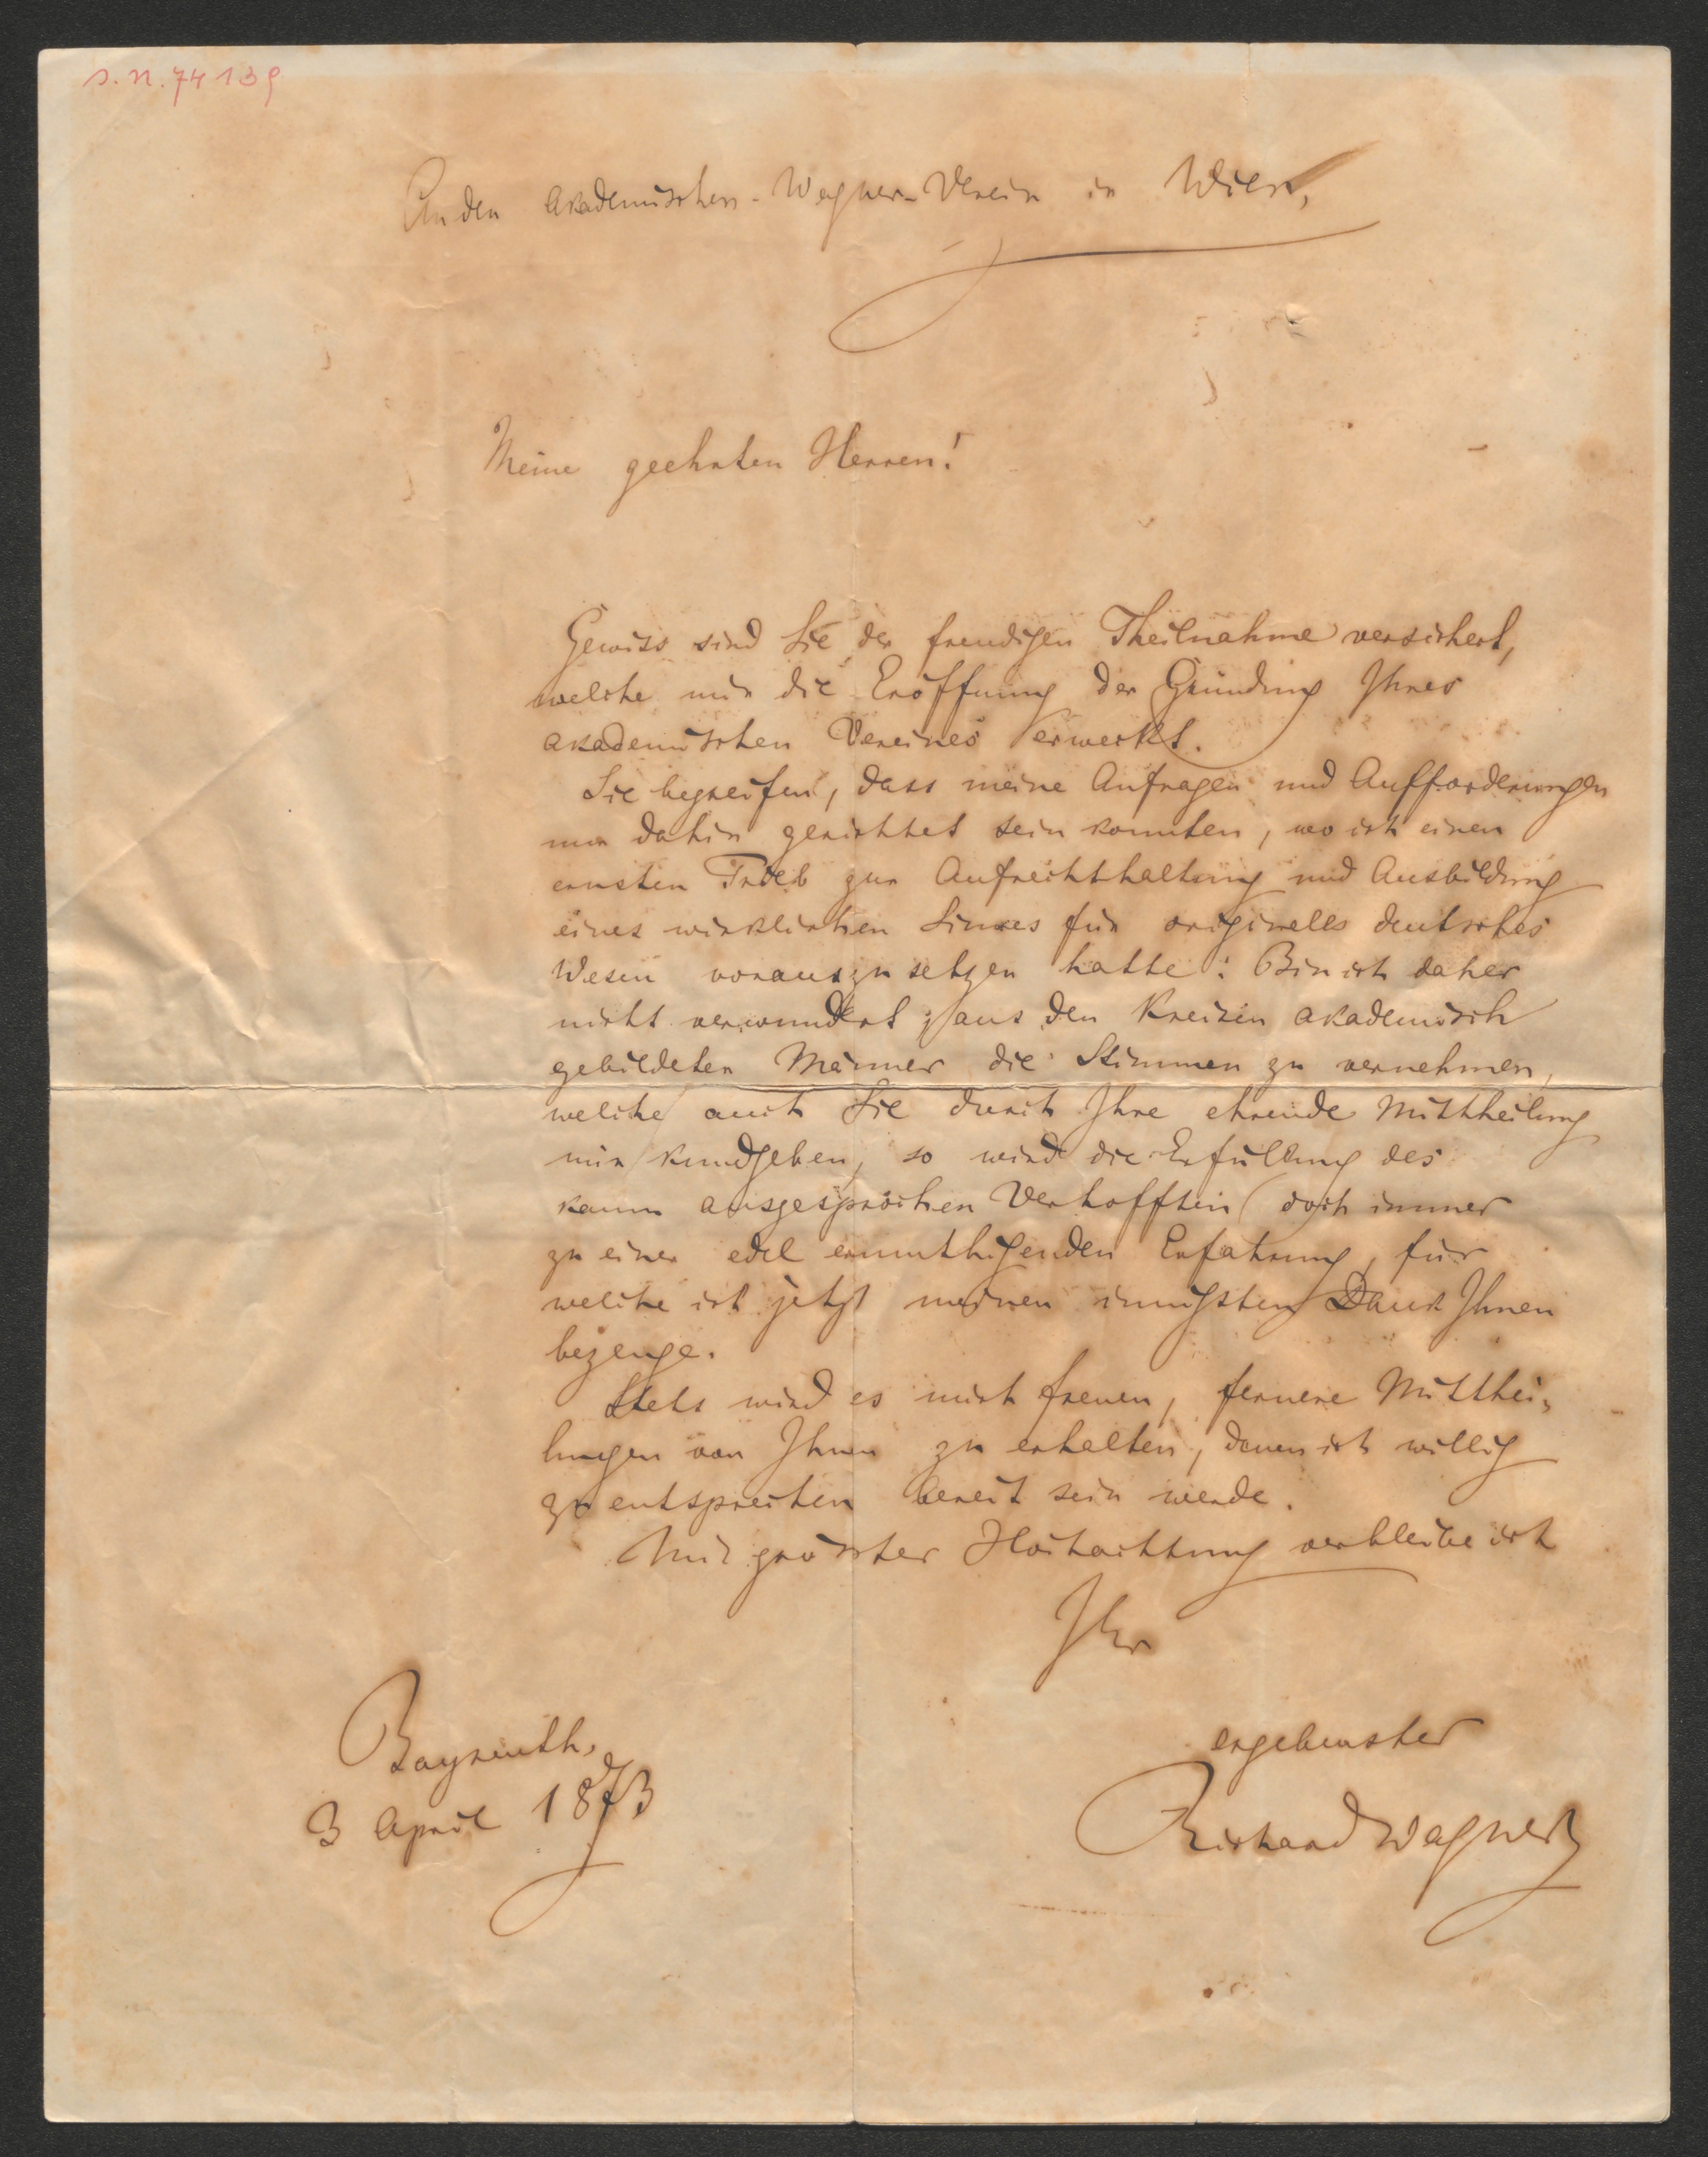 S.N. 74 139
An den akademischen-Wagner-Verein in Wien,
Meine geehrten Herren!
Gewiss sind Sie der freudigen Theilnahme versichert,
welche mir die Eröffnung der Gründung Ihres
akademischen Vereines erweckt.
Sie begreifen, dass meine Anfragen und Aufforderungen
nur dahin gerichtet sein konnten, wo ich einen
ernsten Trieb zur Aufrechthaltung und Ausbildung
eines wirklichen Sinnes für originelles deutsches
Wesen vorauszusetzen hatte: Bin ich daher
nicht verwundert, aus den Kreisen akademisch
gebildeter Männer die Stimmen zu vernehmen,
welche auch Sie durch Ihre ehrende Mittheilung
mir kundgeben, so wird die Erfüllung des
kaum ausgesprochen Verhofften doch immer
zu einer edel ermuthigenden Erfahrung, für
welche ich jetzt meinen innigsten Dank Ihnen
bezeuge.
Stets wird es mich freuen, fernere Mitthei-
lungen von Ihnen zu erhalten, denen ich willig
zu entsprechen bereit sein werde.
Mit grösster Hochachtung verbleibe ich
Ihr
ergebenster
Richard Wagner
Bayreuth,
3 April 1873